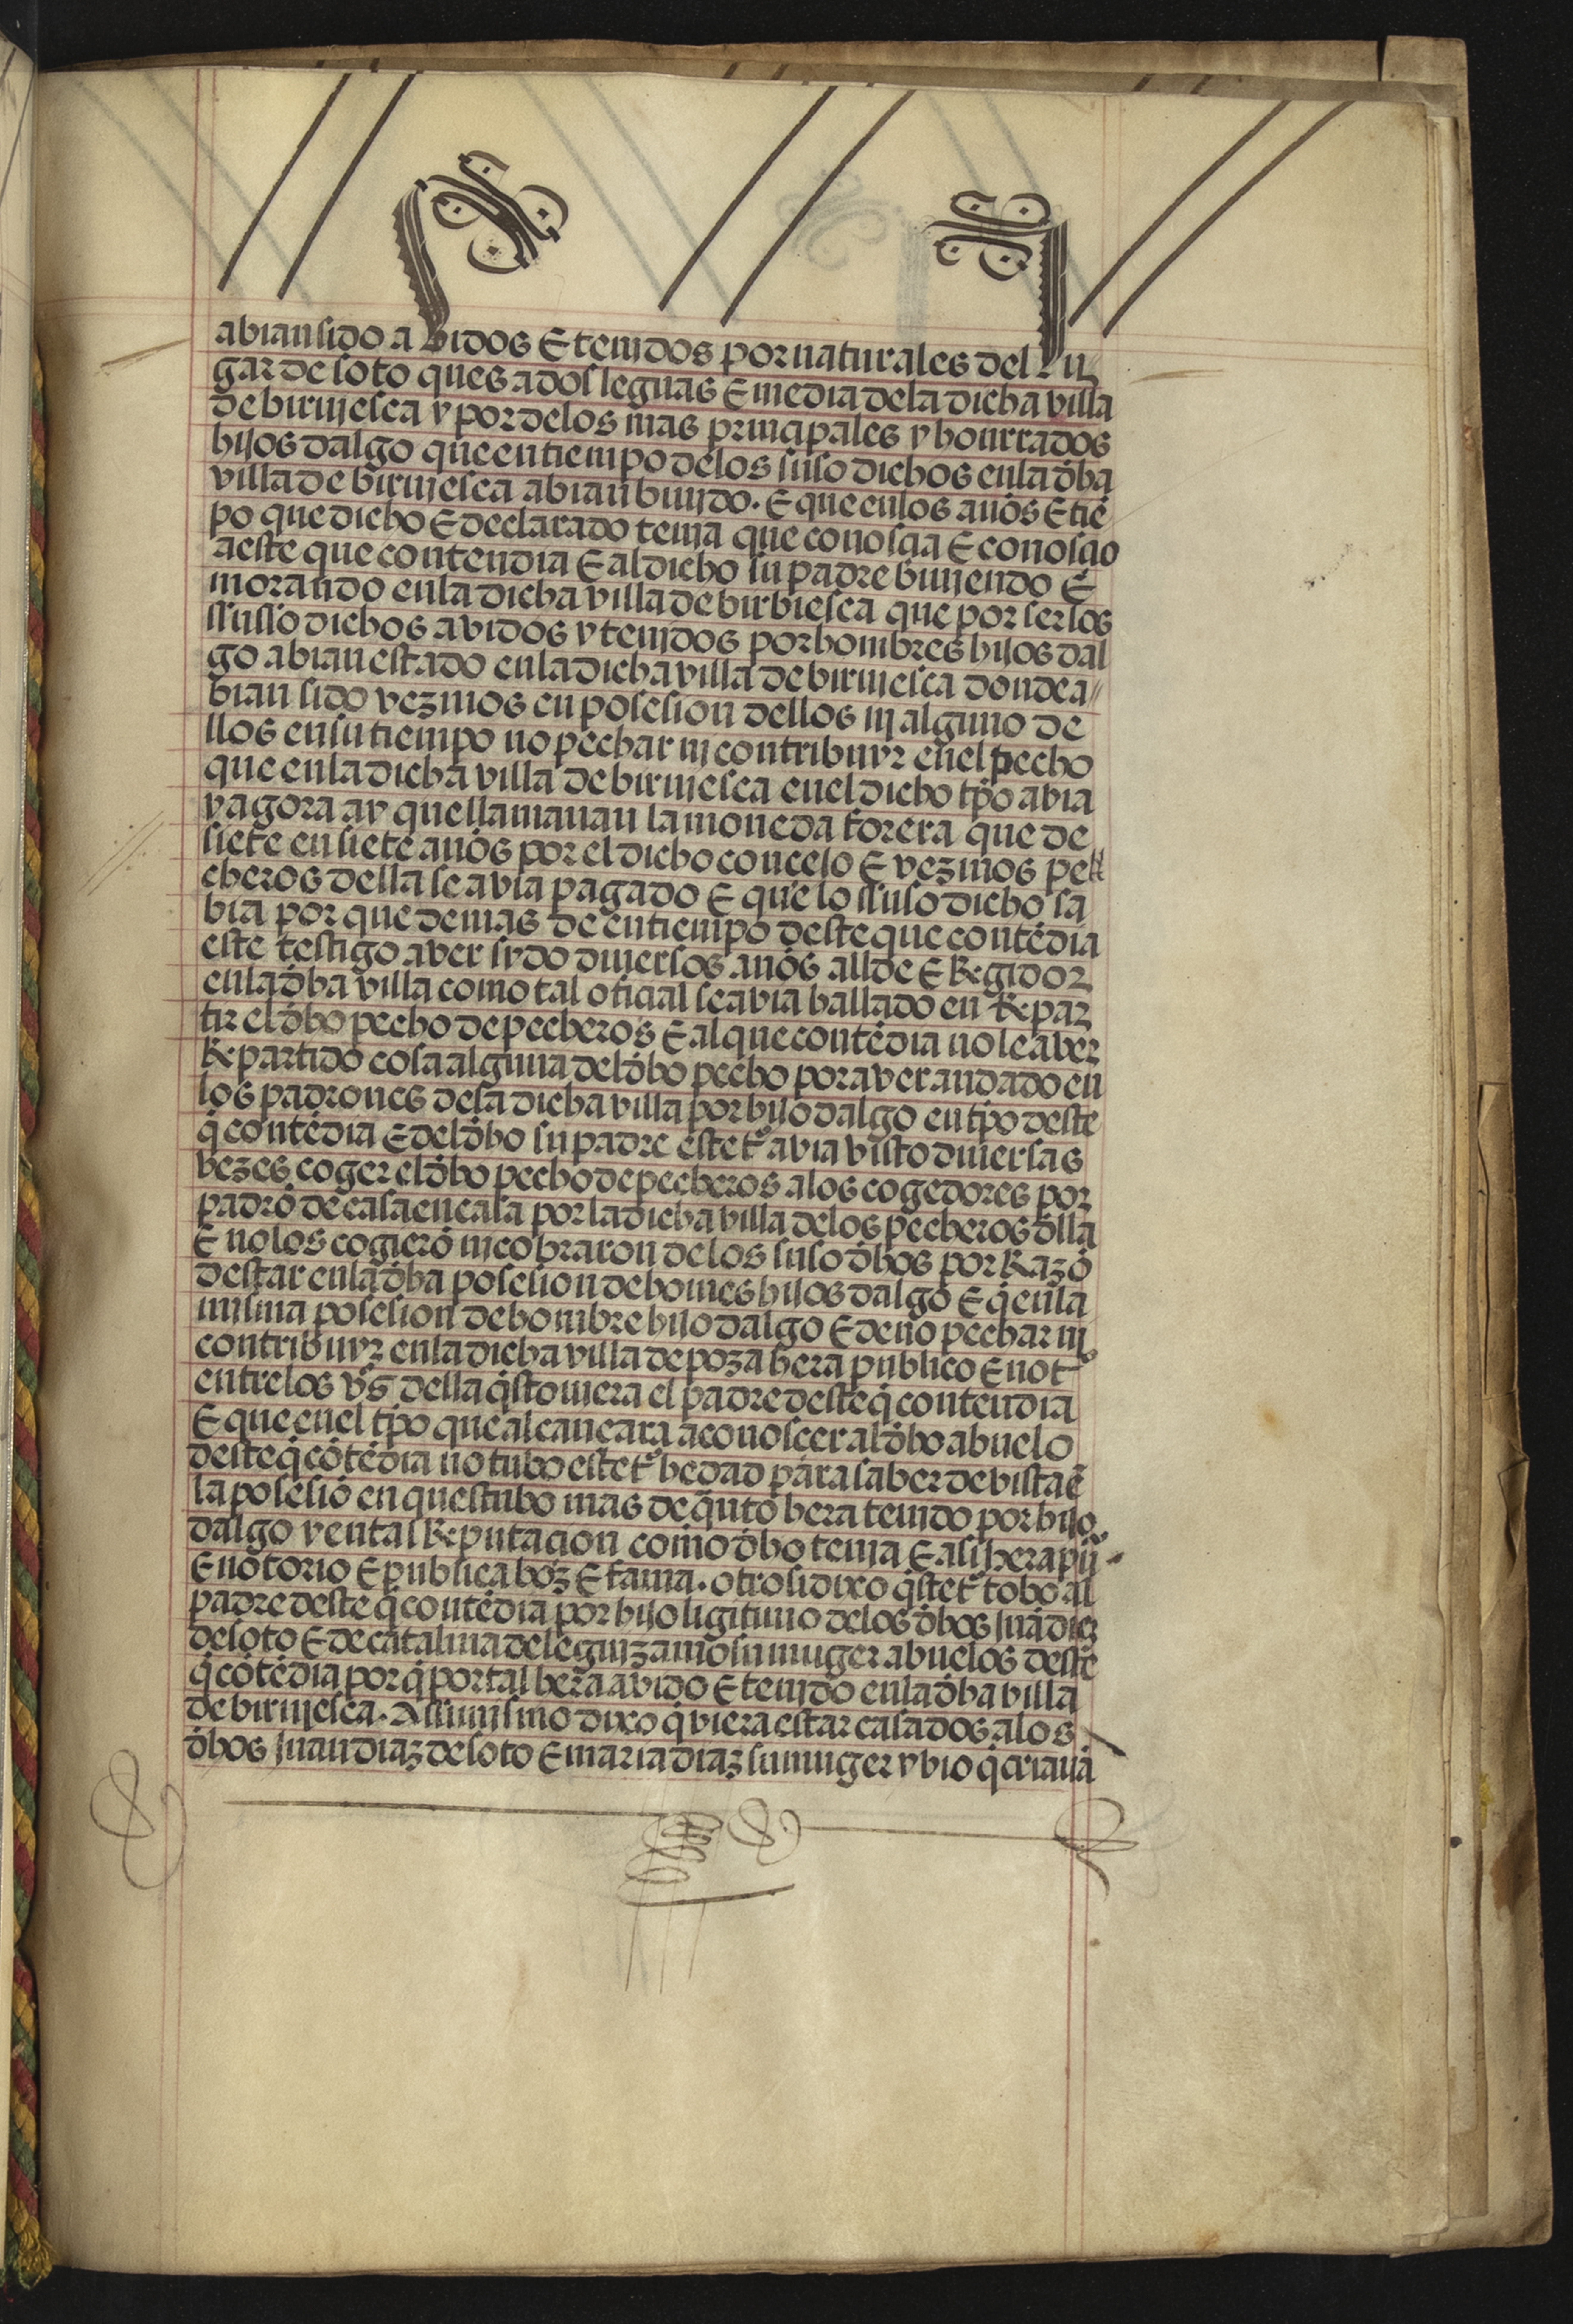 abian sido abidos E tenidos por naturales del lu
gar de soto ques a dos leguas E media dela dicha villa
de biruiesca y por delos mas principales y honrrados
hijos dalgo que en tiempo delos suso dichos en la dha
villa de biruiesca abian biuido. E que en los años E tiē
po que dicho E declarado tenia que conoscia E conoscio
a este que contendia E al dicho su padre biuiendo E
morando en la dicha villa de birbiesca que por ser los
ssusso dichos avidos y tenidos por hombres hijos dal
go abian estado en la dicha villa de biruiesca donde a
bian sido vezinos en posesion dellos ni alguno de
llos en su tiempo no pechar ni contribuyr en el pecho
que en la dicha villa de biruiesca en el dicho tpo abia
y agora ay que llamauan la moneda forera que de
siete en siete años por el dicho concejo E vezinos pe
cheros della se avia pagado E que lo ssuso dicho sa
bia por que demas de en tiempo deste que contēdia
este testigo aver sydo diuersos años allde E Regidor
en la dha villa como tal oficial se avia hallado en Repar
tir el dho pecho de pecheros E al que contēdia no le aver
Repartido cosa alguna del dho pecho por aver andado en
los padrones dela dicha villa por hijo dalgo en tpo deste
q̄ contēdia E del dho su padre este tº avia visto diuersas
vezes coger el dho pecho de pecheros a los cogedores por
padrō de casa en casa por la dicha villa delos pecheros dlla
E no los cogierō ni cobraron de los suso dhos por Razō
destar en la dha posesion de homes hijos dalgo E q̄ en la
misma posesion de hombre hijo dalgo E de no pechar ni
contribuyr en la dicha villa de poza hera publico E notº
entre los vºs della q̄ stouiera el padre deste q̄ contendia
E que en el tpo que alcançara a conoscer al dho abuelo
deste q̄ cōtēdia no tubo este tº hedad para saber de vista ē
la posesiō en que estubo mas de q̄nto hera tenido por hijo
dalgo y en tal Reputacion como dho tenia E asi hera puº
E notorio E publica boz E fama. otrosi dixo q̄ ste tº tobo al
padre deste q̄ contēdia por hijo ligitimo delos dhos juā diez
de soto E de catalina de leguizamo su muger abuelos deste
q̄ cōtēdia por q̄ por tal hera avido E tenido en la dha villa
de biruiesca. Assimismo dixo q̄ viera estar casados a los
dhos juan diaz de soto E maria diaz su muger y vio q̄ criauā